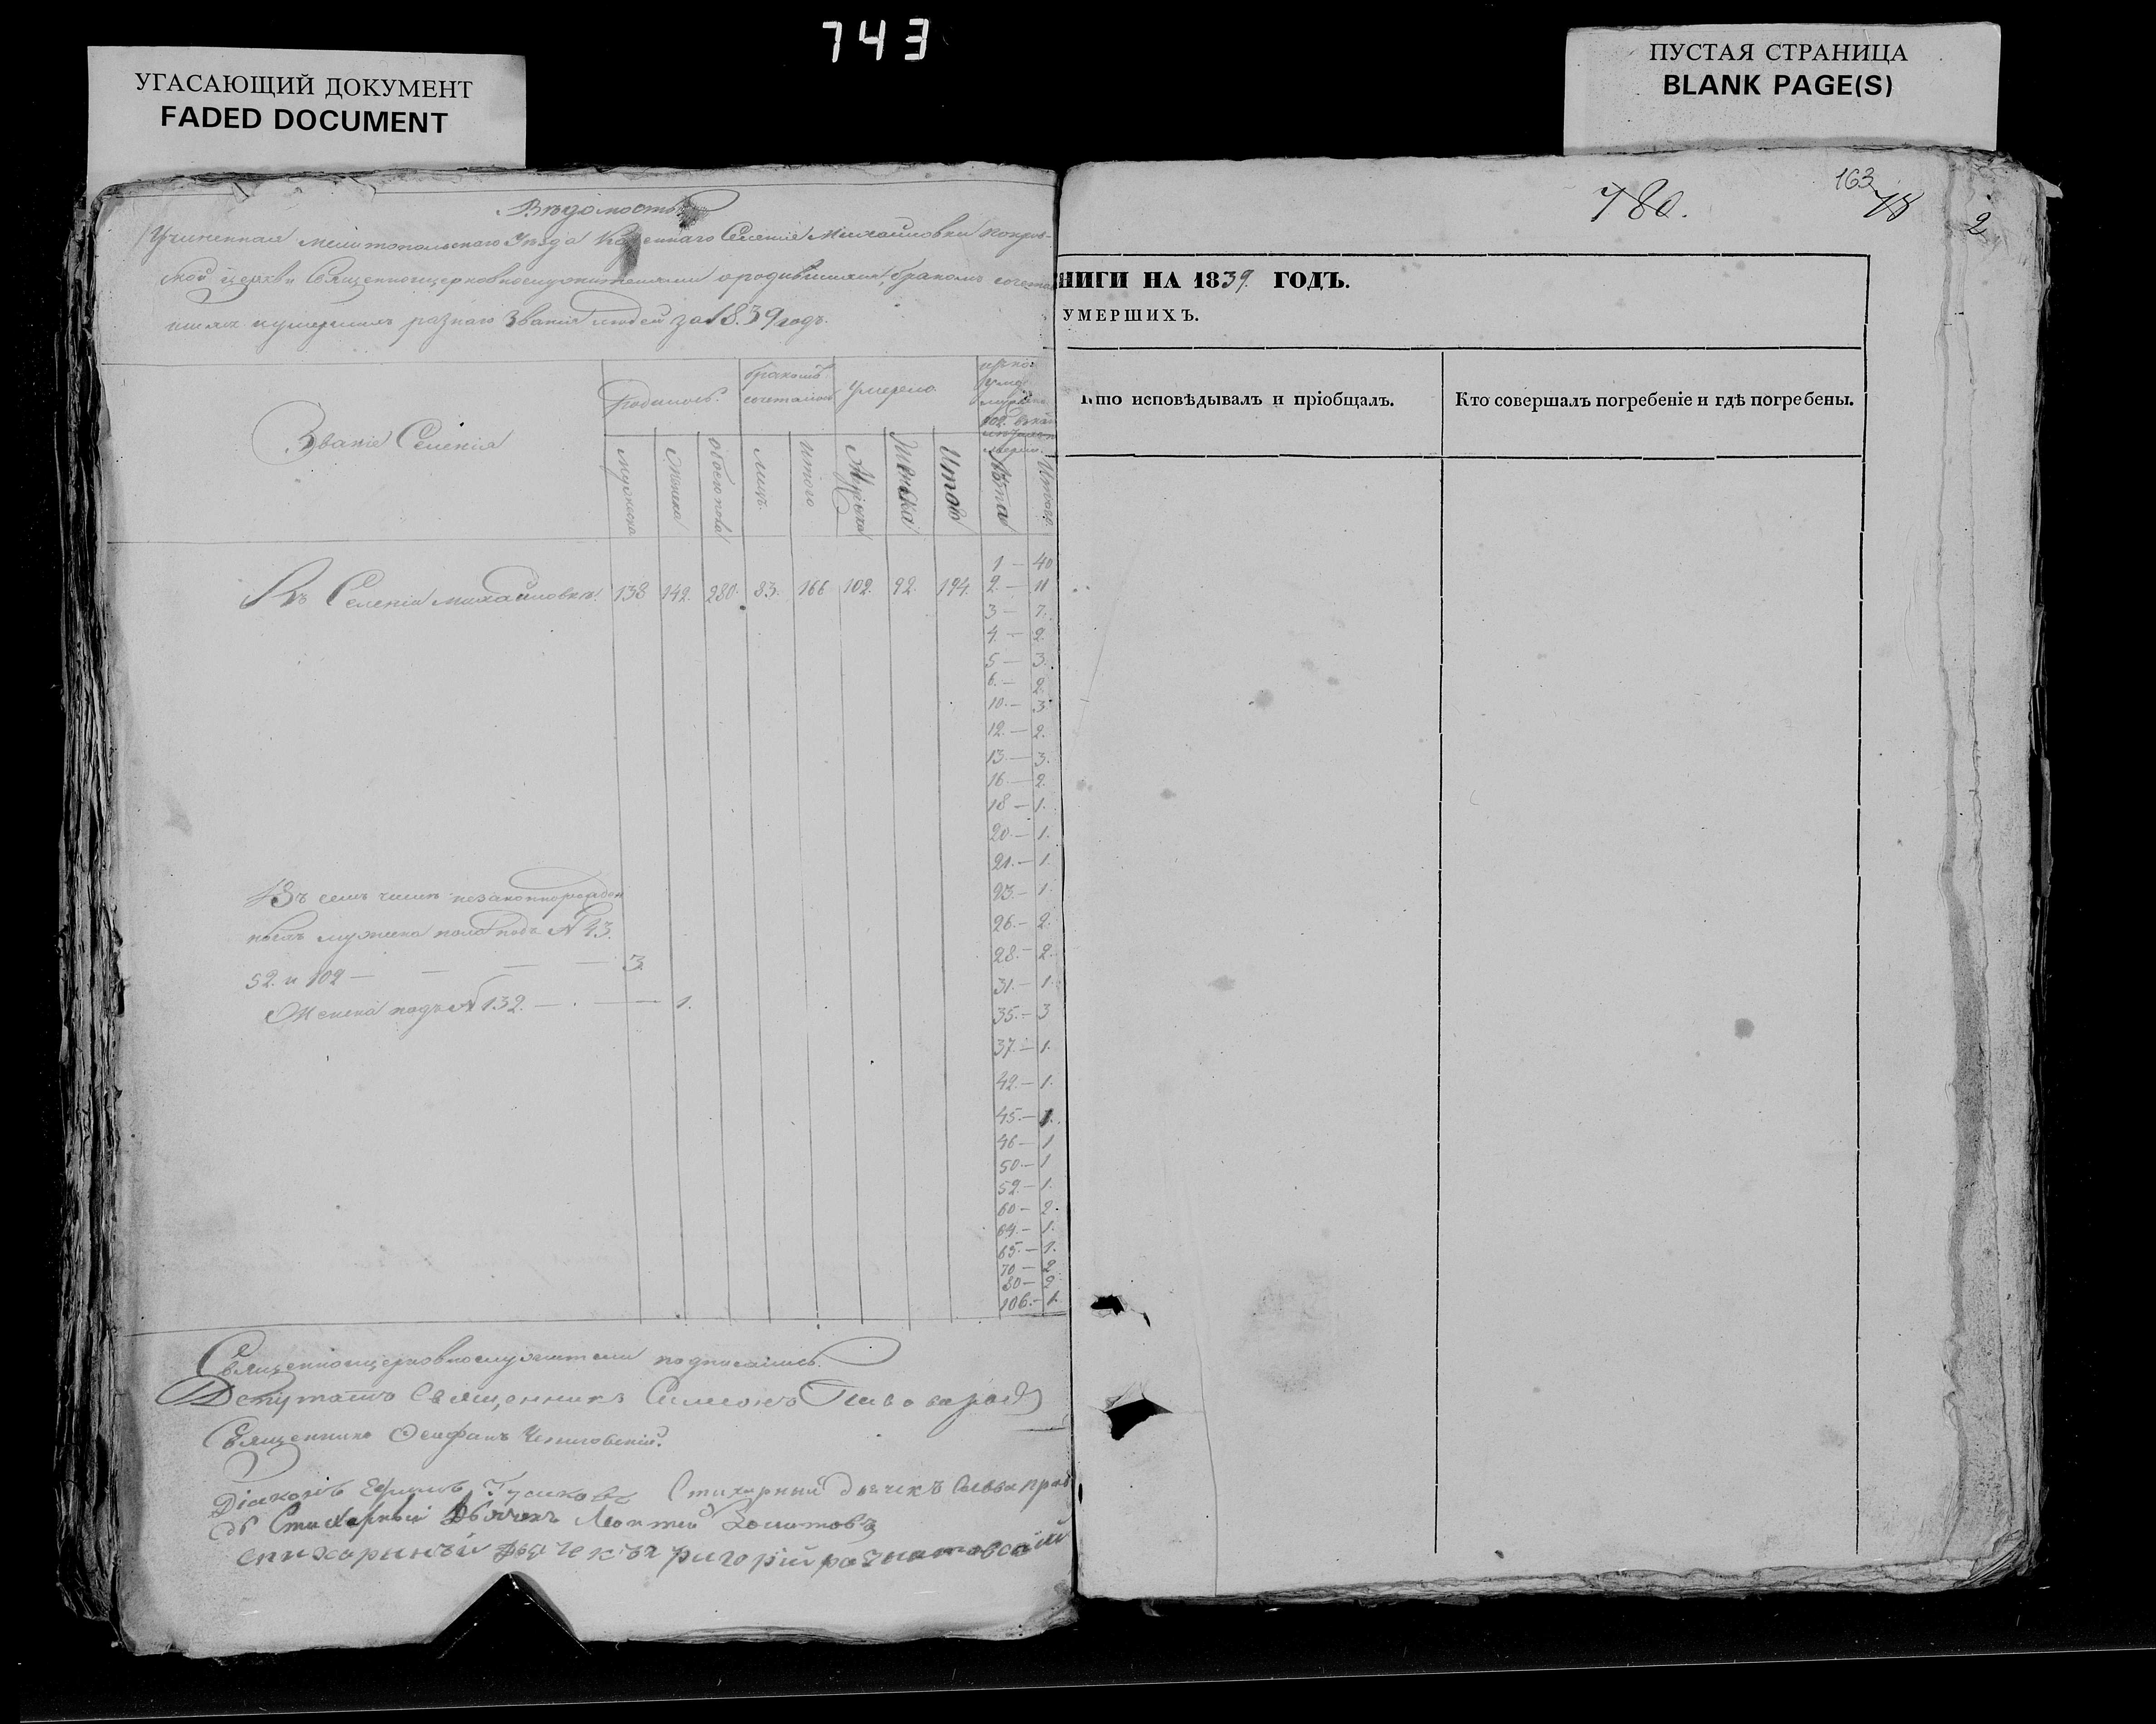 743
УГАСАЮЩИЙ ДОКУМЕНТ
FADED DOCUMENT
ПУСТАЯ СТРАНИЦА
BLANK PAGE(S)
Вѣдомость
Учиненная Мелитопольскаго Уѣзда Казеннаго Селенія Михайловки Покров-
ской церкви Священноцерковнослужителями о родившихся, бракомъ сочетав
шихся и умершихъ разнаго Званія людей за 1839 годъ.
Званіе Селенія
Родилось.
бракомъ
сочеталось
Умерло
мужеска
Женска
обоего пола
лицъ.
Итого
Мужеска
Женска
Итого
Лѣта
Итого.
Въ Селеніи Михайловкѣ. 138 142. 280. 83. 166 102. 92. 194.
1 — 40
2. — 11
3 — 7.
4. — 2.
5 — 3.
6. — 2
10. — 3
12. — 2.
13 — 3.
16. — 2.
18 — 1.
20. — 1.
21. — 1.
23. — 1.
26. — 2.
28. — 2.
31. — 1.
35. — 3
37. — 1.
42. — 1.
45. — 1.
46 — 1
50. — 1
52. — 1.
60 — 2.
64. — 1.
65. — 1.
70 — 2
80 — 2
106. — 1.
Въ семъ числѣ незаконнорожден
мужеска пола подъ № 43.
52. и 102 — — — — 3.
Женска подъ № 132. — . — 1.
Священноцерковнослужители подписались.
Депутатъ Священникъ Симеонъ Пивоваровъ
Священникъ Стефанъ Черниговскій.
Діаконъ Ефимъ Гусаковъ Стихарный дьячекъ Савва
Стихарный Дьячекъ Леонтий
стихарный дьячекъ григорій
780.
163
78
2
НИГИ НА 1839. ГОДЪ.
УМЕРШИХЪ.
Кто исповѣдывалъ и пріобщалъ.
Кто совершалъ погребеніе и гдѣ погребены.